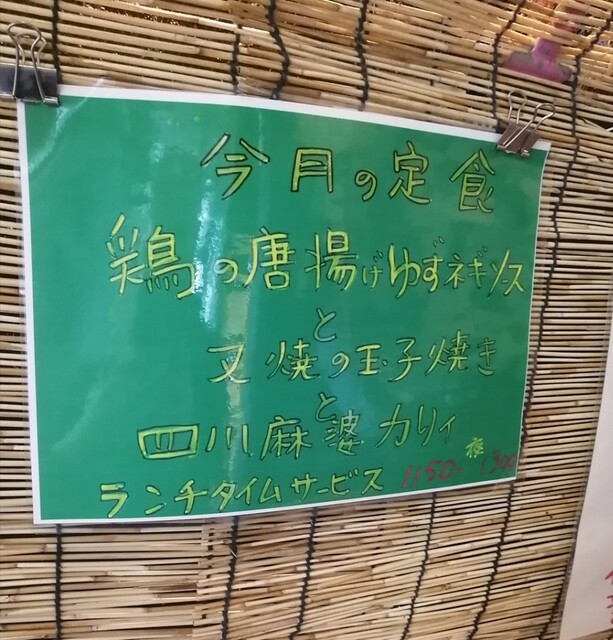 今月の定食
鶏の唐揚げゆずネギソース
と
叉焼の玉子焼き
と
四川麻婆カリィ
夜
ランチタイムサービス 1150- 1300